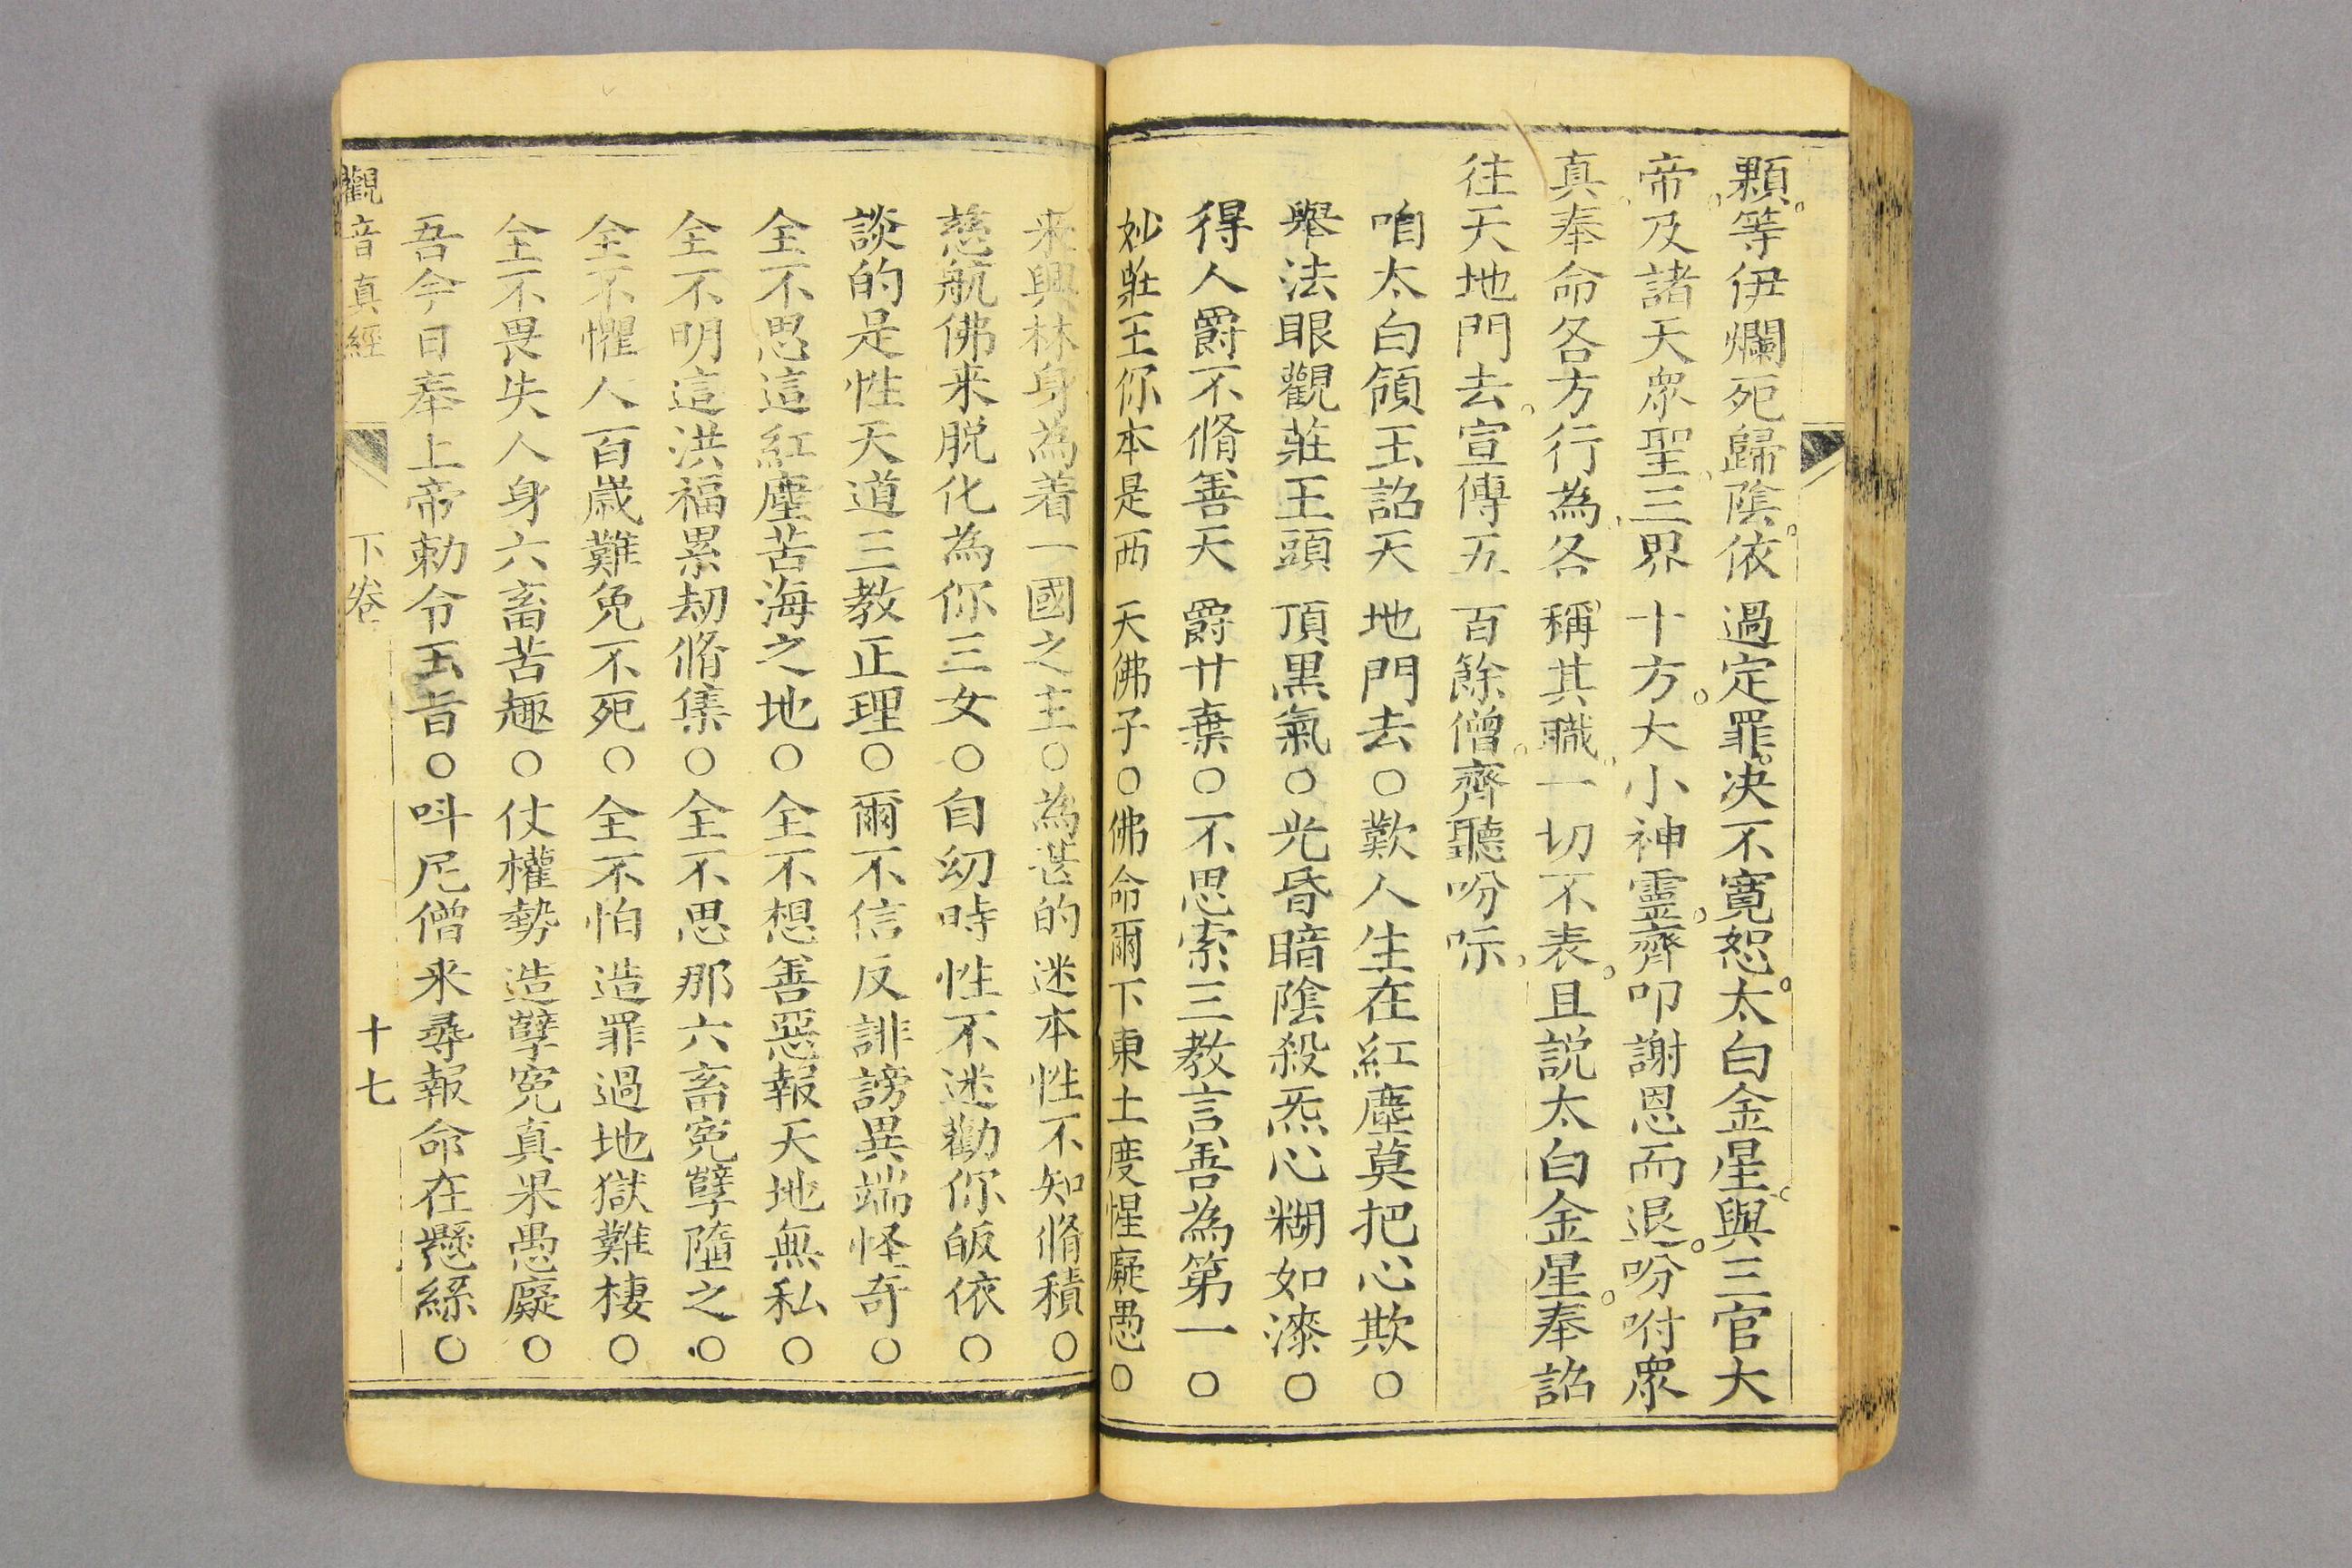 顆等伊爛死歸陰依過定罪决不寛恕太白金星與三官大
帝及諸天衆聖三界十方大小神靈齊叩謝恩而退吩咐衆
真奉命各方行為各稱其職一切不表且説太白金星奉詔
往天地門去宣傳五百餘僧齊聽吩示
咱太白領玉詔天地門去○歎人生在紅塵莫把心欺○
舉法眼觀莊王頭頂黒氣○光昏暗陰殺炁心糊如漆○
得人爵不脩善天爵廿棄○不思索三教言善為第一○
妙莊王你本是西天佛子○佛命爾下東土度惺癡愚○
来興林身為着一國之主○為甚的迷本性不知脩積○
慈航佛来脱化為你三女○自幼時性不迷勸你皈依○
談的是性天道三教正理○爾不信反誹謗異端怪奇○
全不思這紅塵苦海之地○全不想善惡報天地無私○
全不明這洪福累刧脩集○全不思那六畜寃孽墮之○
全不懼人百歳難免不死○全不怕造罪過地獄難棲○
全不畏失人身六畜苦趣○仗權勢造孽寃真果愚癡○
吾今日奉上帝勅令玉旨○呌尼僧来尋報命在懸絲○
觀音真經 下卷 十七